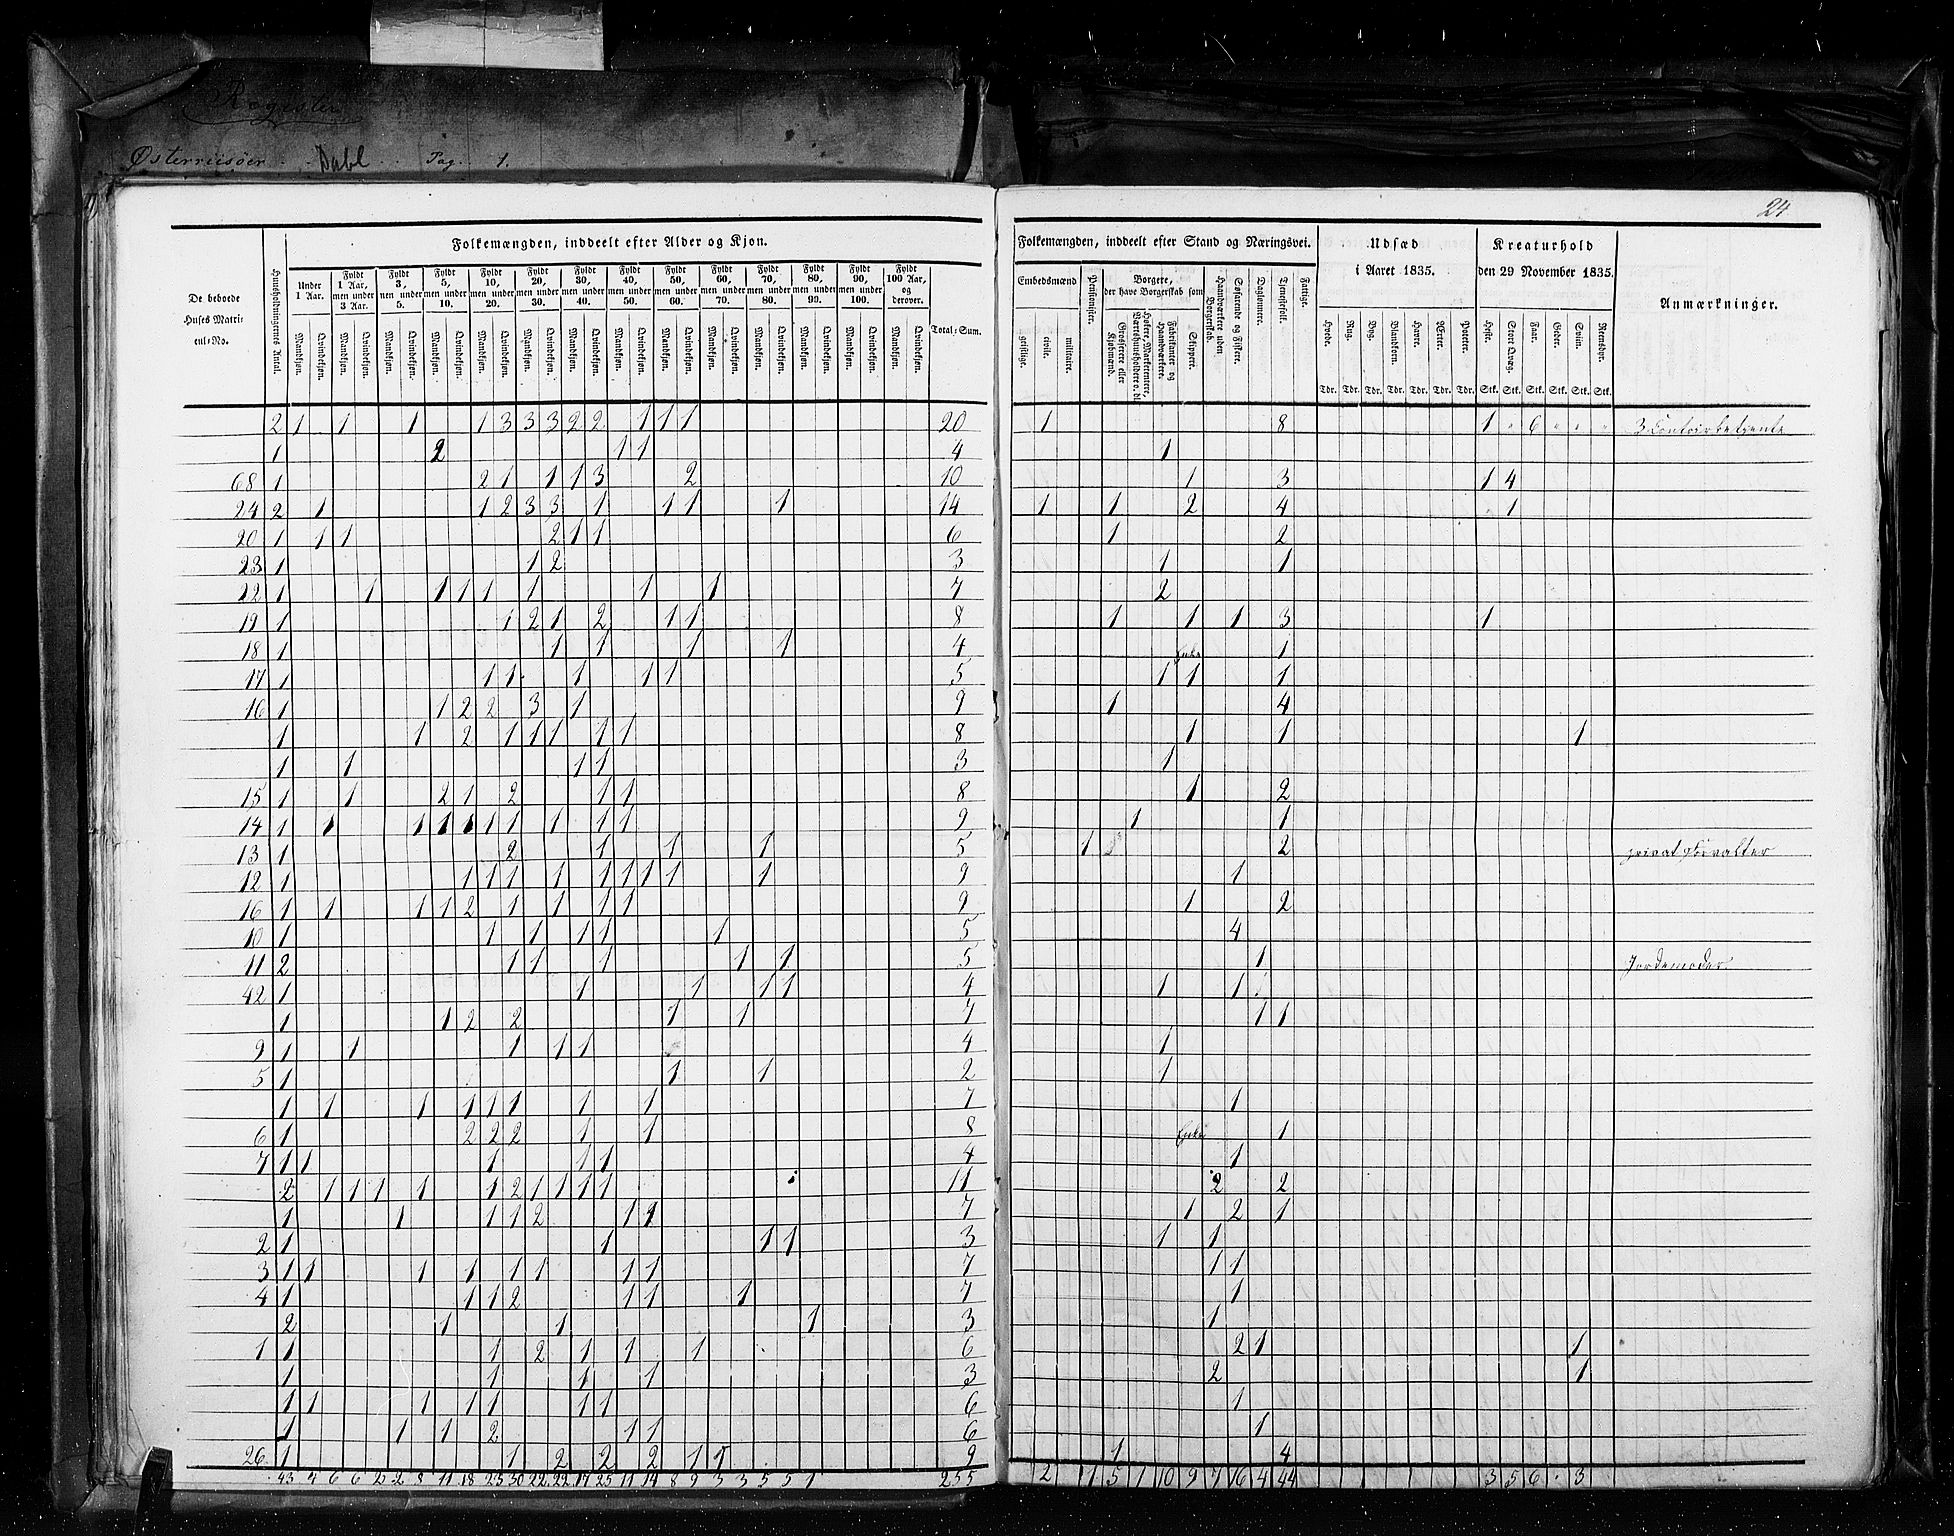 Register
Østerriisøer Dahl Pag. 1.
24
Folkemængden, inddeelt efter Alder og Kjøn.
Folkemængden, inddeelt efter Stand og Næringsvei.
Udsæd i Aaret 1835.
Kreaturhold den 29 November 1835.
Anmærkninger.
De beboede Huses Matricul-No.
Huusholdningernes Antal.
Under 1 Aar.
Fyldt 1 Aar, men under 3 Aar.
Fyldt 3, men under 5.
Fyldt 5, men under 10.
Fyldt 10, men under 20.
Fyldt 20, men under 30.
Fyldt 30, men under 40.
Fyldt 40, men under 50.
Fyldt 50, men under 60.
Fyldt 60, men under 70.
Fyldt 70, men under 80.
Fyldt 80, men under 90.
Fyldt 90, men under 100.
Fyldt 100 Aar, og derover.
Mandkjøn. Qvindekjøn.
Total-Sum.
Embedsmænd
geistlige. civile. militaire.
Pensionister.
Borgere, der have Borgerskab som
Grosserere eller Kjøbmænd.
Høkere, Marketentere, Værtshuusholdere o. dl.
Fabrikanter og Haandværkere.
Skippere.
Haandværkere uden Borgerskab.
Søfarende og Fiskere.
Daglønnere.
Tjenestefolk.
Fattige.
Hvede. Rug. Byg. Blandkorn. Havre. Ærter. Poteter.
Tdr. Tdr. Tdr. Tdr. Tdr. Tdr. Tdr.
Heste. Stort Qvæg. Faar. Geder. Sviin. Rensdyr.
Stk. Stk. Stk. Stk. Stk. Stk.
2 1 1 1 1 3 3 3 2 2 1 1 1 20 1 8 1 6 3 Contoirbetjente
1 2 1 1 4 1
68 1 2 1 1 1 3 2 10 1 3 1 4
24 2 1 1 2 3 3 1 1 1 1 14 1 1 2 4 1
20 1 1 1 2 1 1 6 1 2
23 1 1 2 3 1 1
22 1 1 1 1 1 1 1 1 7 2
19 1 1 2 1 2 1 1 8 1 1 1 3 1
18 1 1 1 1 1 4 Enke 1
17 1 1 1 1 1 1 5 1 1 1
16 1 1 2 2 3 1 9 1 4
1 1 2 1 1 1 1 1 8 1 1 1
1 1 1 1 3 1
15 1 1 2 1 2 1 1 8 1 2
14 1 1 1 1 1 1 1 1 1 1 9 1 1
13 1 2 1 1 1 5 1 2 privat
12 1 1 1 1 1 1 1 1 1 1 9 1
16 1 1 1 1 2 1 1 1 1 9 1 2
10 1 1 1 1 1 1 5 4
11 2 1 1 1 1 1 5 1 Jordemoder.
42 1 1 1 1 1 4 1 1
1 1 2 2 1 1 7 1 1
9 1 1 1 1 1 4 1
5 1 1 1 2 1
1 1 1 1 1 1 1 1 7 1
6 1 2 2 2 1 1 8 Enke 1
7 1 1 1 1 1 4 1
2 1 1 1 1 1 2 1 1 1 1 11 2 2
1 1 1 1 2 1 1 7 1 2 1
2 1 1 1 1 3 1 1
3 1 1 1 1 1 1 1 1 7 1 1
4 1 1 1 2 1 1 1 7 1
2 1 1 1 3 1
1 1 1 2 1 1 1 6 2 1 1
1 1 1 1 3 2 1
1 1 1 1 1 1 1 6 1
1 1 1 2 1 1 6 1
26 1 1 2 2 2 1 1 9 1 4
43 4 6 6 2 2 8 11 18 23 30 22 22 17 25 11 14 8 9 3 3 5 5 1 255 2 1 5 1 10 9 7 16 4 44 3 5 6 3